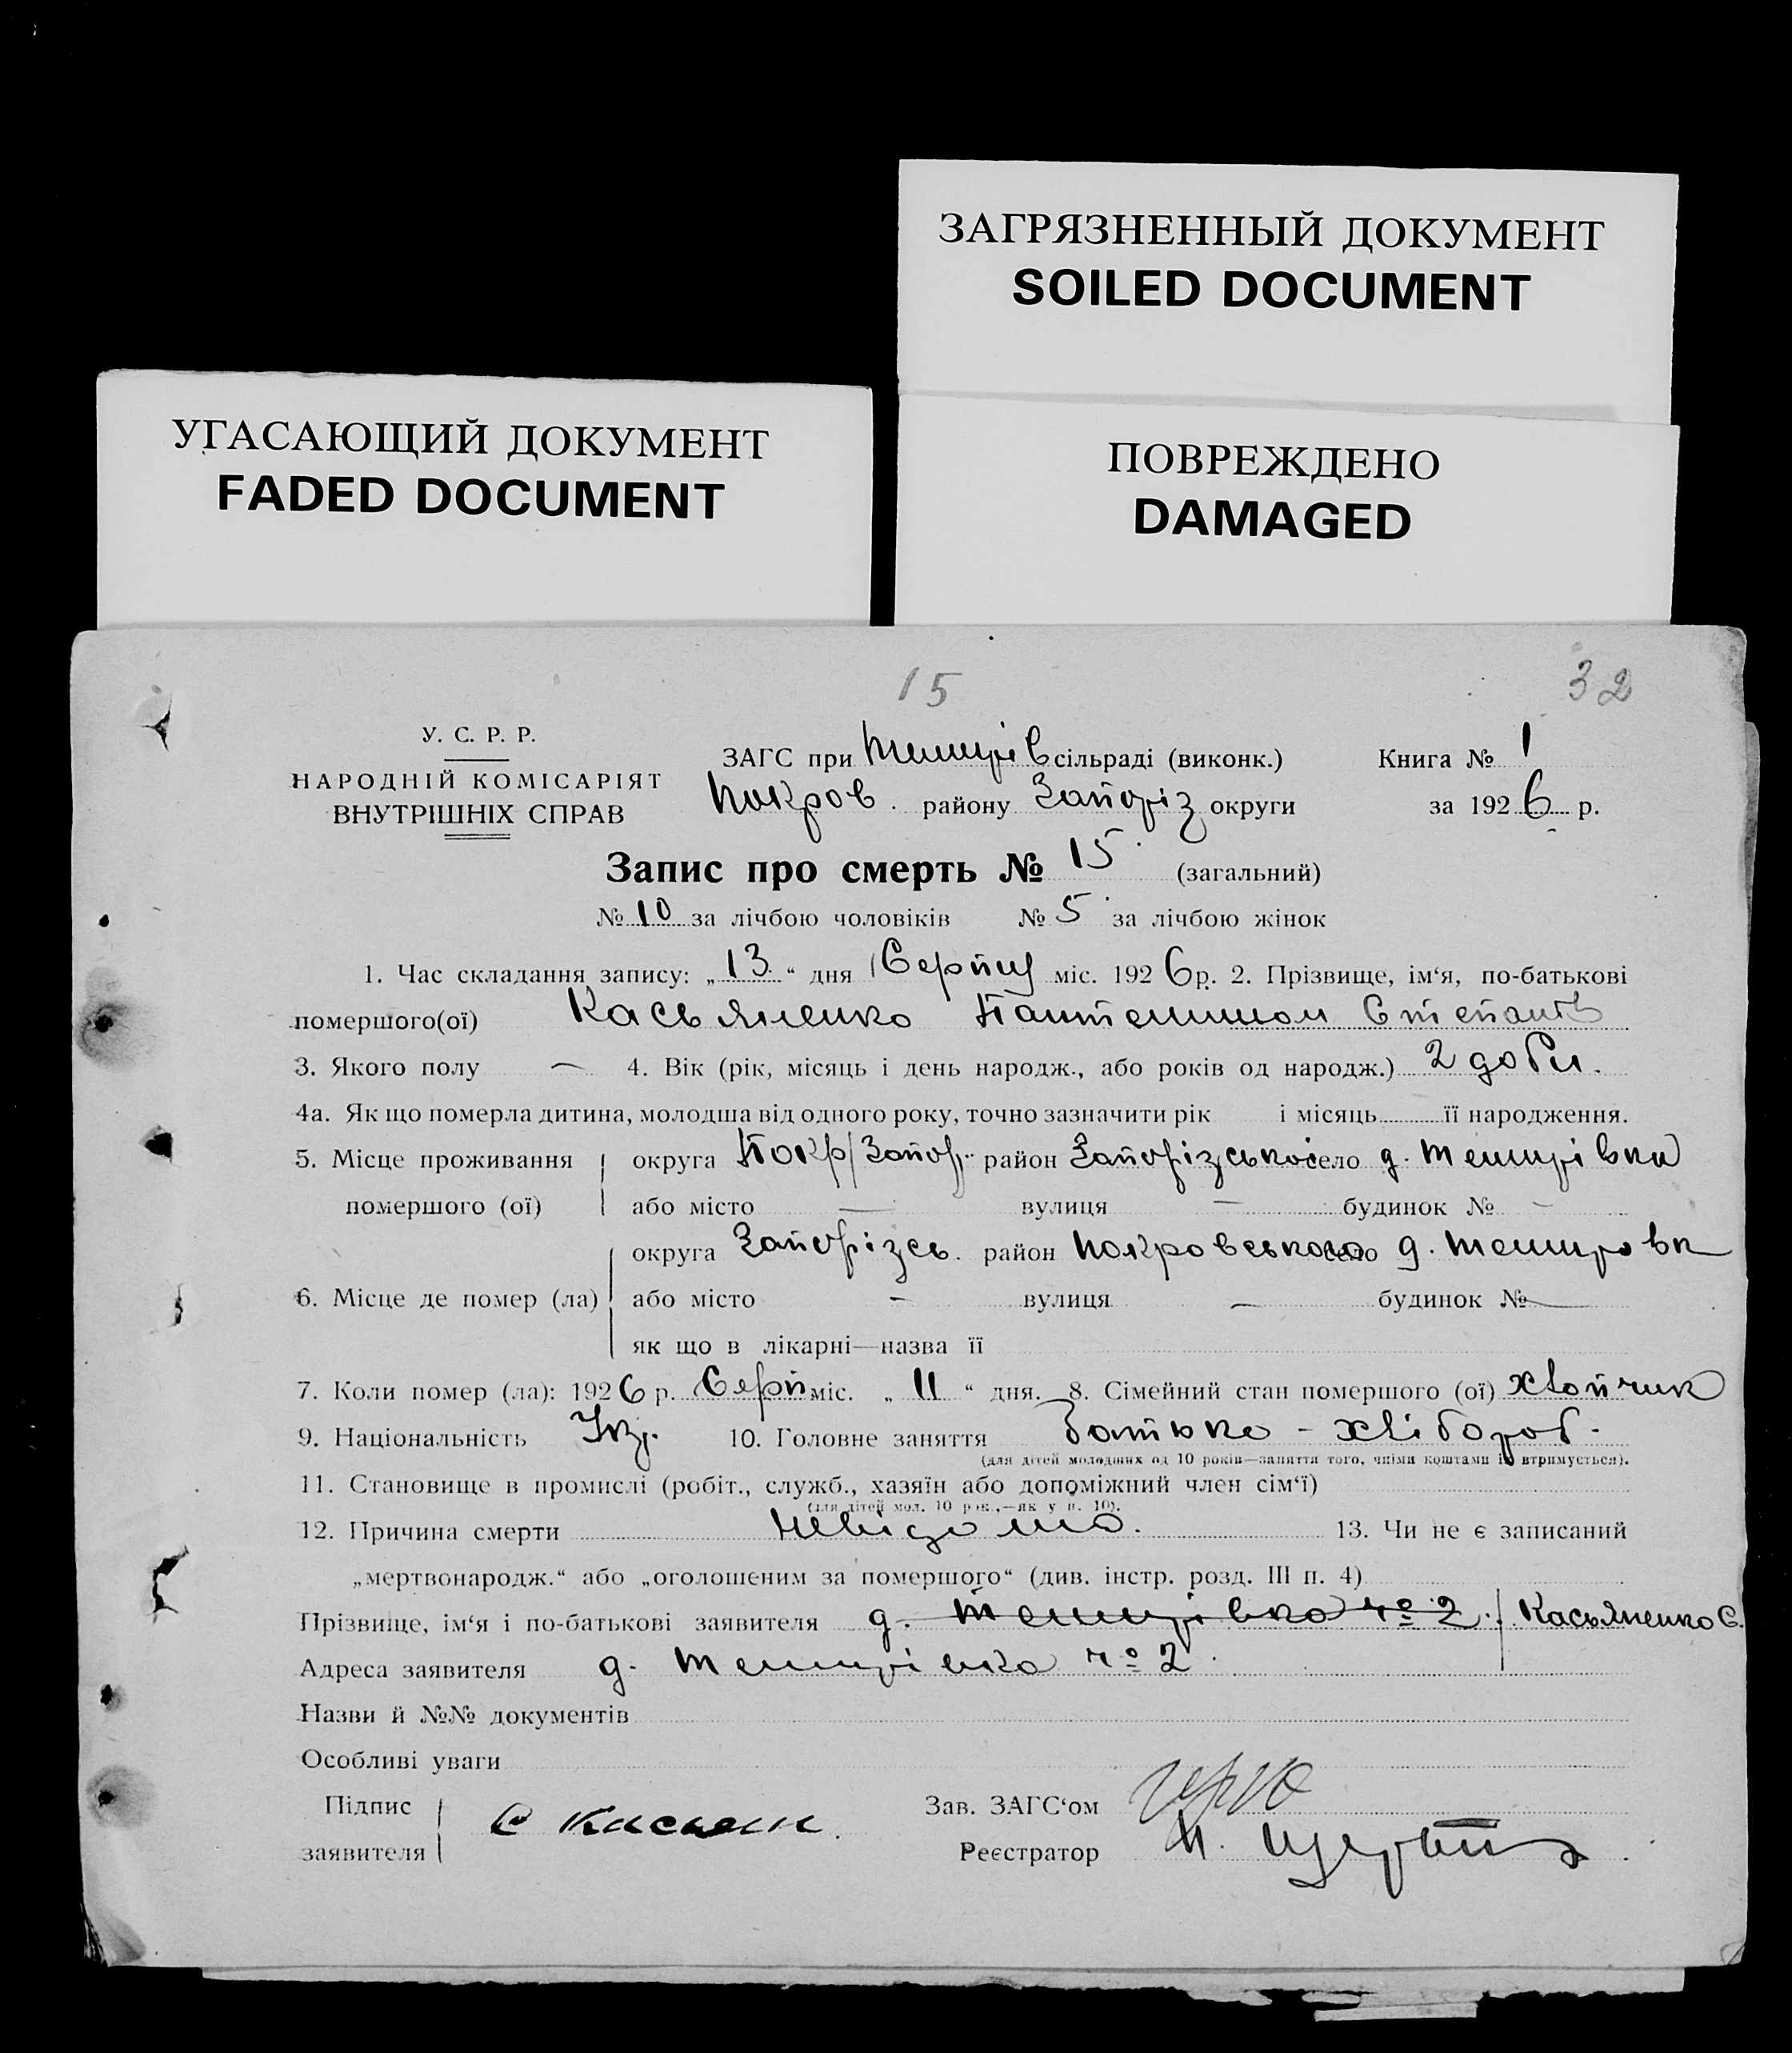 ЗАГРЯЗНЕННЫЙ ДОКУМЕНТ
SOILED DOCUMENT
УГАСАЮЩИЙ ДОКУМЕНТ
FADED DOCUMENT
ПОВРЕЖДЕНО
DAMAGED
15
32
У. С. Р. Р.
НАРОДНІЙ КОМІСАРІЯТ
ВНУТРІШНІХ СПРАВ
ЗАГС при Темирів сільраді (виконк.) Книга № 1
Покров. району Запоріз округи за 1926 р.
Запис про смерть № 15 (загальний)
№ 10 за лічбою чоловіків № 5 за лічбою жінок
1. Час складання запису: „13“ дня Серпня міс. 1926 р. 2. Прізвище, ім‘я, по-батькові
помершого(ої) Касьяненко Пантелимон
3. Якого полу — 4. Вік (рік, місяць і день народж., або років од народж.) 2 доби.
4а. Як що померла дитина, молодша від одного року, точно зазначити рік і місяць її народження.
5. Місце проживання округа Покр/Запор. район Запорізської село д. Темирівка
помершого (ої) або місто — вулиця — будинок № —
округа Запорізсь. район Покровського село д. Темировк
6. Місце де помер (ла) або місто — вулиця — будинок № —
як що в лікарні—назва її
7. Коли помер (ла): 1926 р. Серп міс. „11“ дня. 8. Сімейний стан помершого (ої) хлопчик
9. Національність Укр. 10. Головне заняття Батько - хлібороб.
(для дітей молодших од 10 років—заняття того, чиїми коштами їх втримується).
11. Становище в промислі (робіт., служб., хазяїн або допоміжний член сім‘ї)
(для дітей мол. 10 рок.,—як у п. 10).
12. Причина смерти Невідомо. 13. Чи не є записаний
„мертвонародж.“ або „оголошеним за помершого“ (див. інстр. розд. III п. 4)
Прізвище, ім‘я і по-батькові заявителя д. Темирівка № 2. / Касьяненко С.
Адреса заявителя д. Темирівка № 2.
Назви й №№ документів
Особливі уваги
Підпис Зав. ЗАГС‘ом
заявителя С Касьян. Реєстратор